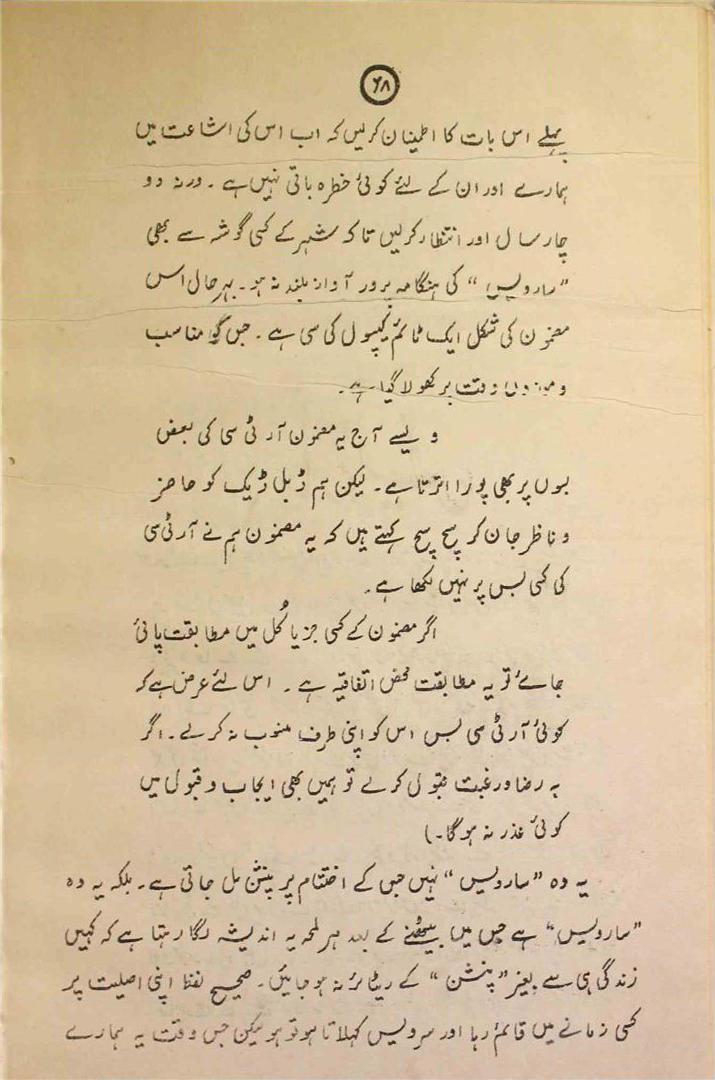 ۶۸
پہلے اس بات کا اطمینان کرلیں کہ اب اس کی اشاعت میں
ہمارے اور ان کے لئے کوئی خطرہ باقی نہیں ہے ۔ ورنہ دو
چار سال اور انتظار کرلیں تاکہ شہر کے کسی گوشہ سے بھی
”سارویس“ کی ہنگامہ پرور آواز بلند نہ ہو۔ بہرحال اس
مضمون کی شکل ایک ٹائم کیپسول کی سی ہے ۔ جس کو مناسب
و موزوں وقت پر کھولا گیا ہے ۔
ویسے آج یہ مضمون آر ٹی سی کی بعض
بسوں پر بھی پورا اترتا ہے۔ لیکن ہم ڈبل ڈیک کو حاضر
و ناظر جان کر سچ سچ کہتے ہیں کہ یہ مضمون ہم نے آر ٹی سی
کی کسی بس پر نہیں لکھا ہے ۔
اگر مضمون کے کسی جز یا کُل میں مطابقت پائی
جائے تو یہ مطابقت محض اتفاقیہ ہے ۔ اس لئے عرض ہے کہ
کوئی آر ٹی سی بس اس کو اپنی طرف منسوب نہ کرلے ۔ اگر
بہ رضا و رغبت قبول کرلے تو ہمیں بھی ایجاب و قبول میں
کوئی عذر نہ ہوگا۔)
یہ وہ ”سارویس“ نہیں جس کے اختتام پر پنشن مل جاتی ہے ۔ بلکہ یہ وہ
”سارویس“ ہے جس میں بیٹھنے کے بعد ہر لمحہ یہ اندیشہ لگا رہتا ہے کہ کہیں
زندگی ہی سے بغیر ”پنشن“ کے ریٹائر نہ ہو جائیں۔ صحیح لفظ اپنی اصلیت پر
کسی زمانے میں قائم رہا اور سرویس کہلاتا ہو تو ہو لیکن جس وقت یہ ہمارے